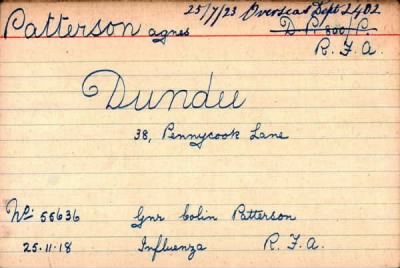 25/7/23 Overseas Dept 2402
Patterson Agnes D.P. 800/P.
R.F.A.
Dundee
38, Pennycook Lane
No: 55636 Gnr Colin Patterson
25.11.18 Influenza R.F.A.